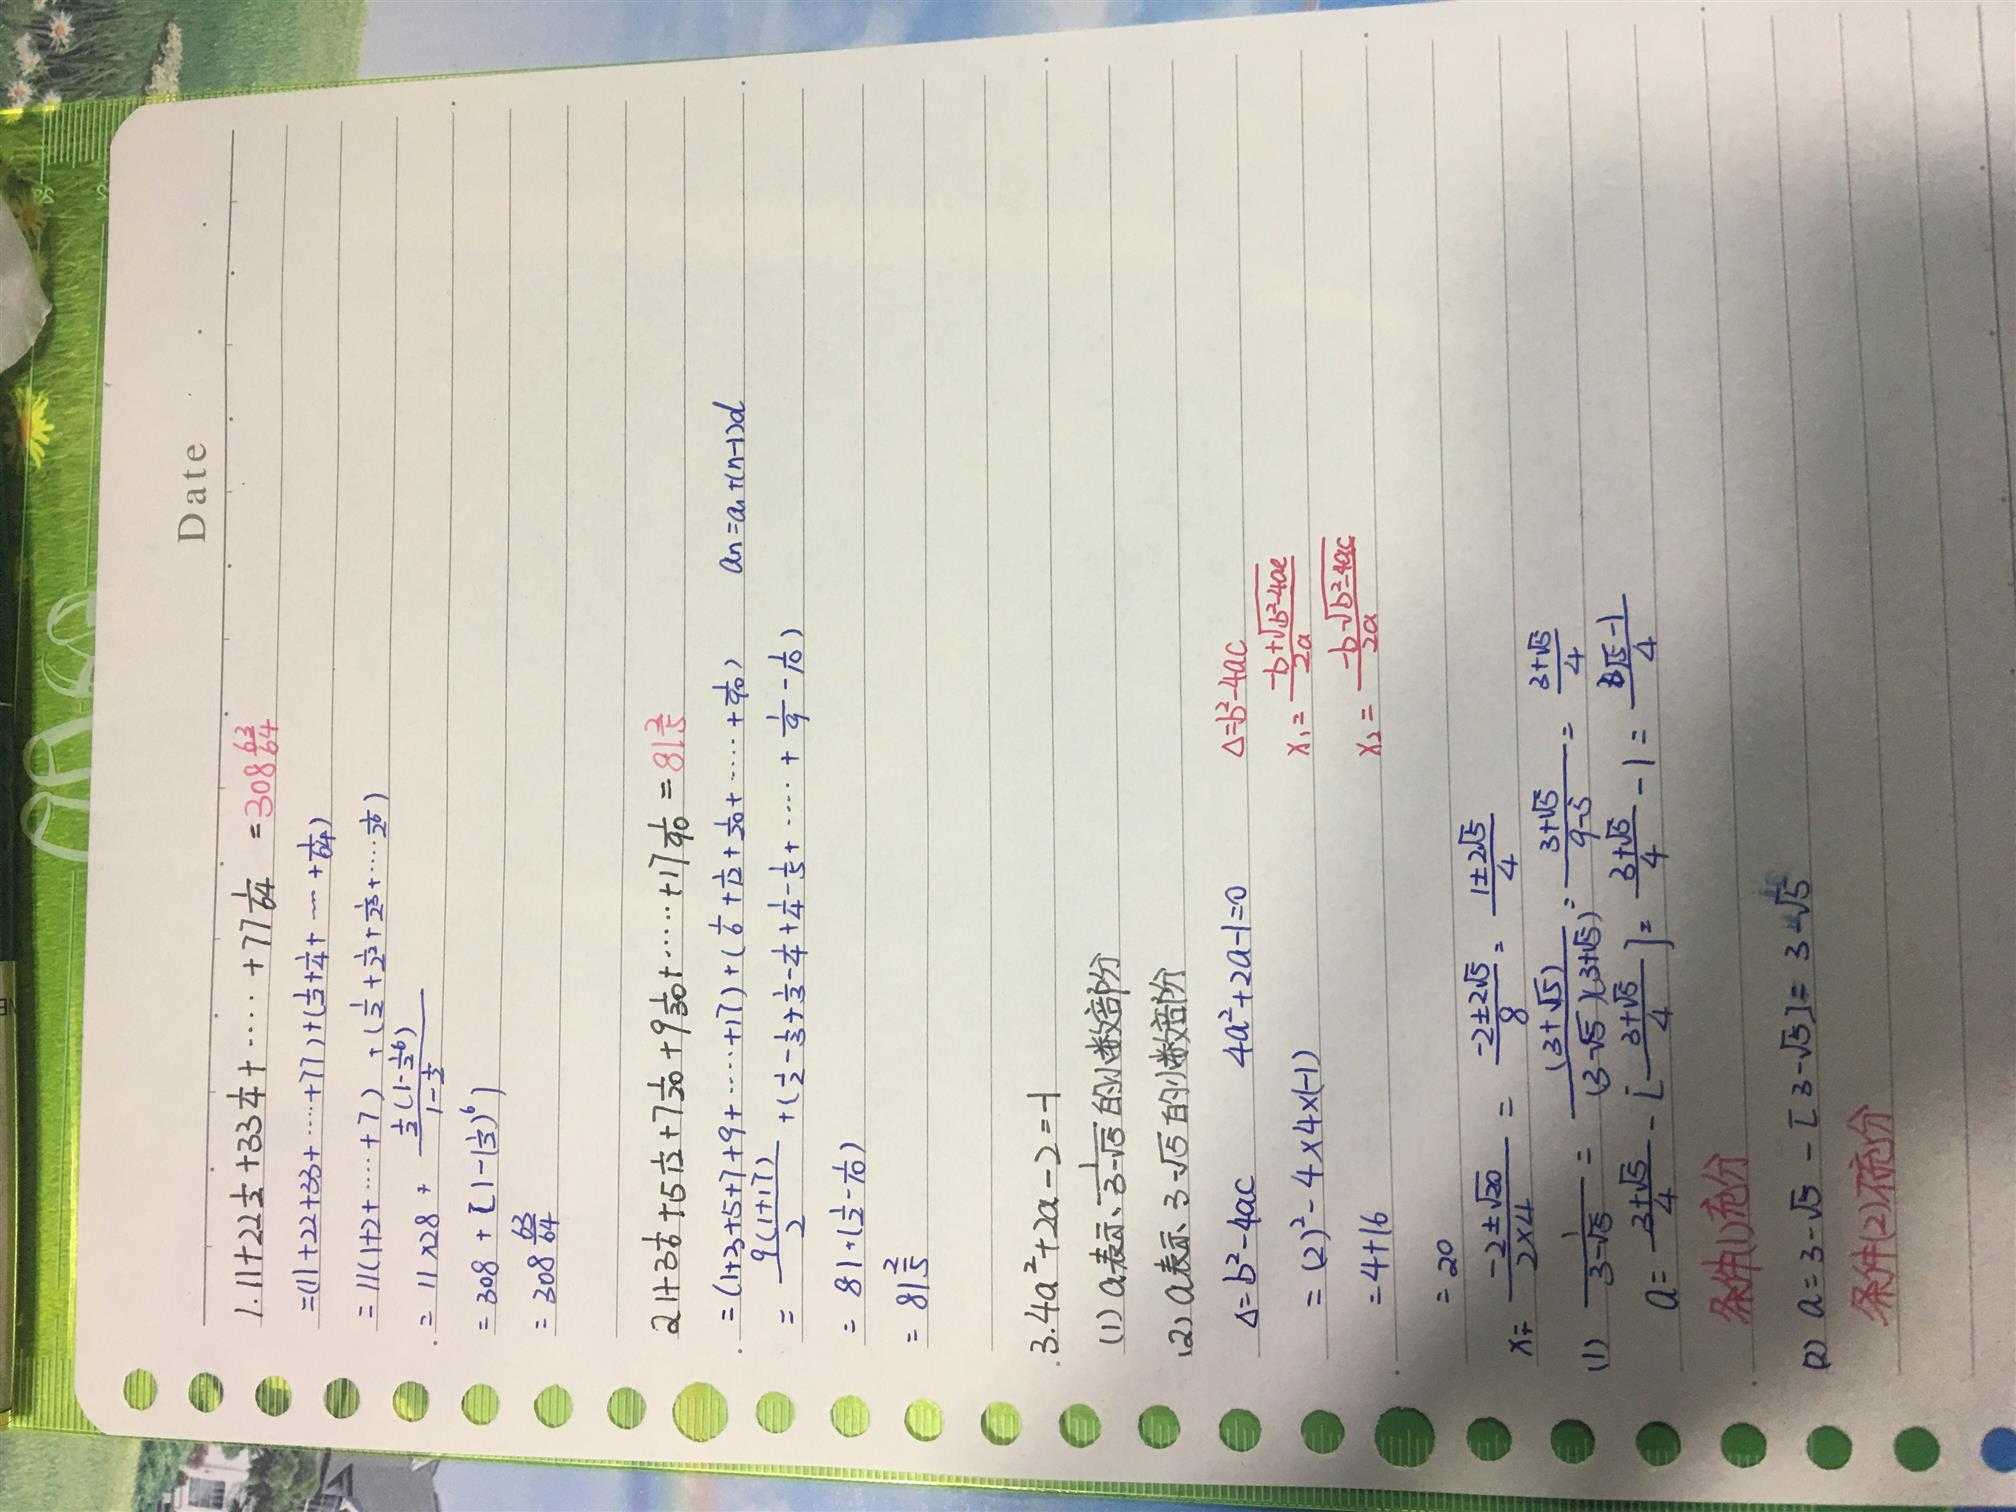 Date
1. 11+22½+33¼+……+77 1/64 =308 63/64
=(11+22+33+……+77)+(½+¼+……+1/64)
=11(1+2+……+7)+(½+1/2²+1/2³+……1/2⁶)
=11×28+ ½(1-1/2⁶)/(1-½)
=308+[1-(½)⁶]
=308 63/64
2 1+3 1/6+5 1/12+7 1/20+9 1/30+……+17 1/90 =81 2/5
=(1+3+5+7+9+……+17)+(1/6+1/12+1/20+……+1/90) an=a₁+(n-1)d
= 9(1+17)/2 +(½-⅓+⅓-¼+¼-1/5+……+1/9-1/10)
=81+(½-1/10)
=81 2/5
3. 4a²+2a-2=-1
(1) a表示 1/(3-√5)的小数部分
(2) a表示3-√5的小数部分
Δ=b²-4ac 4a²+2a-1=0 Δ=b²-4ac
=(2)²-4×4×(-1) x₁= (-b+√(b²-4ac))/2a
=4+16 x₂= (-b-√(b²-4ac))/2a
=20
x= (-2±√20)/(2×4) = (-2±2√5)/8 = (1±2√5)/4
(1) 1/(3-√5) = (3+√5)/((3-√5)(3+√5)) = (3+√5)/(9-5) = (3+√5)/4
a= (3+√5)/4 - [(3+√5)/4] = (3+√5)/4 -1= (√5-1)/4
条件(1)充分
(2) a=3-√5-[3-√5]=3-√5
条件(2)不充分